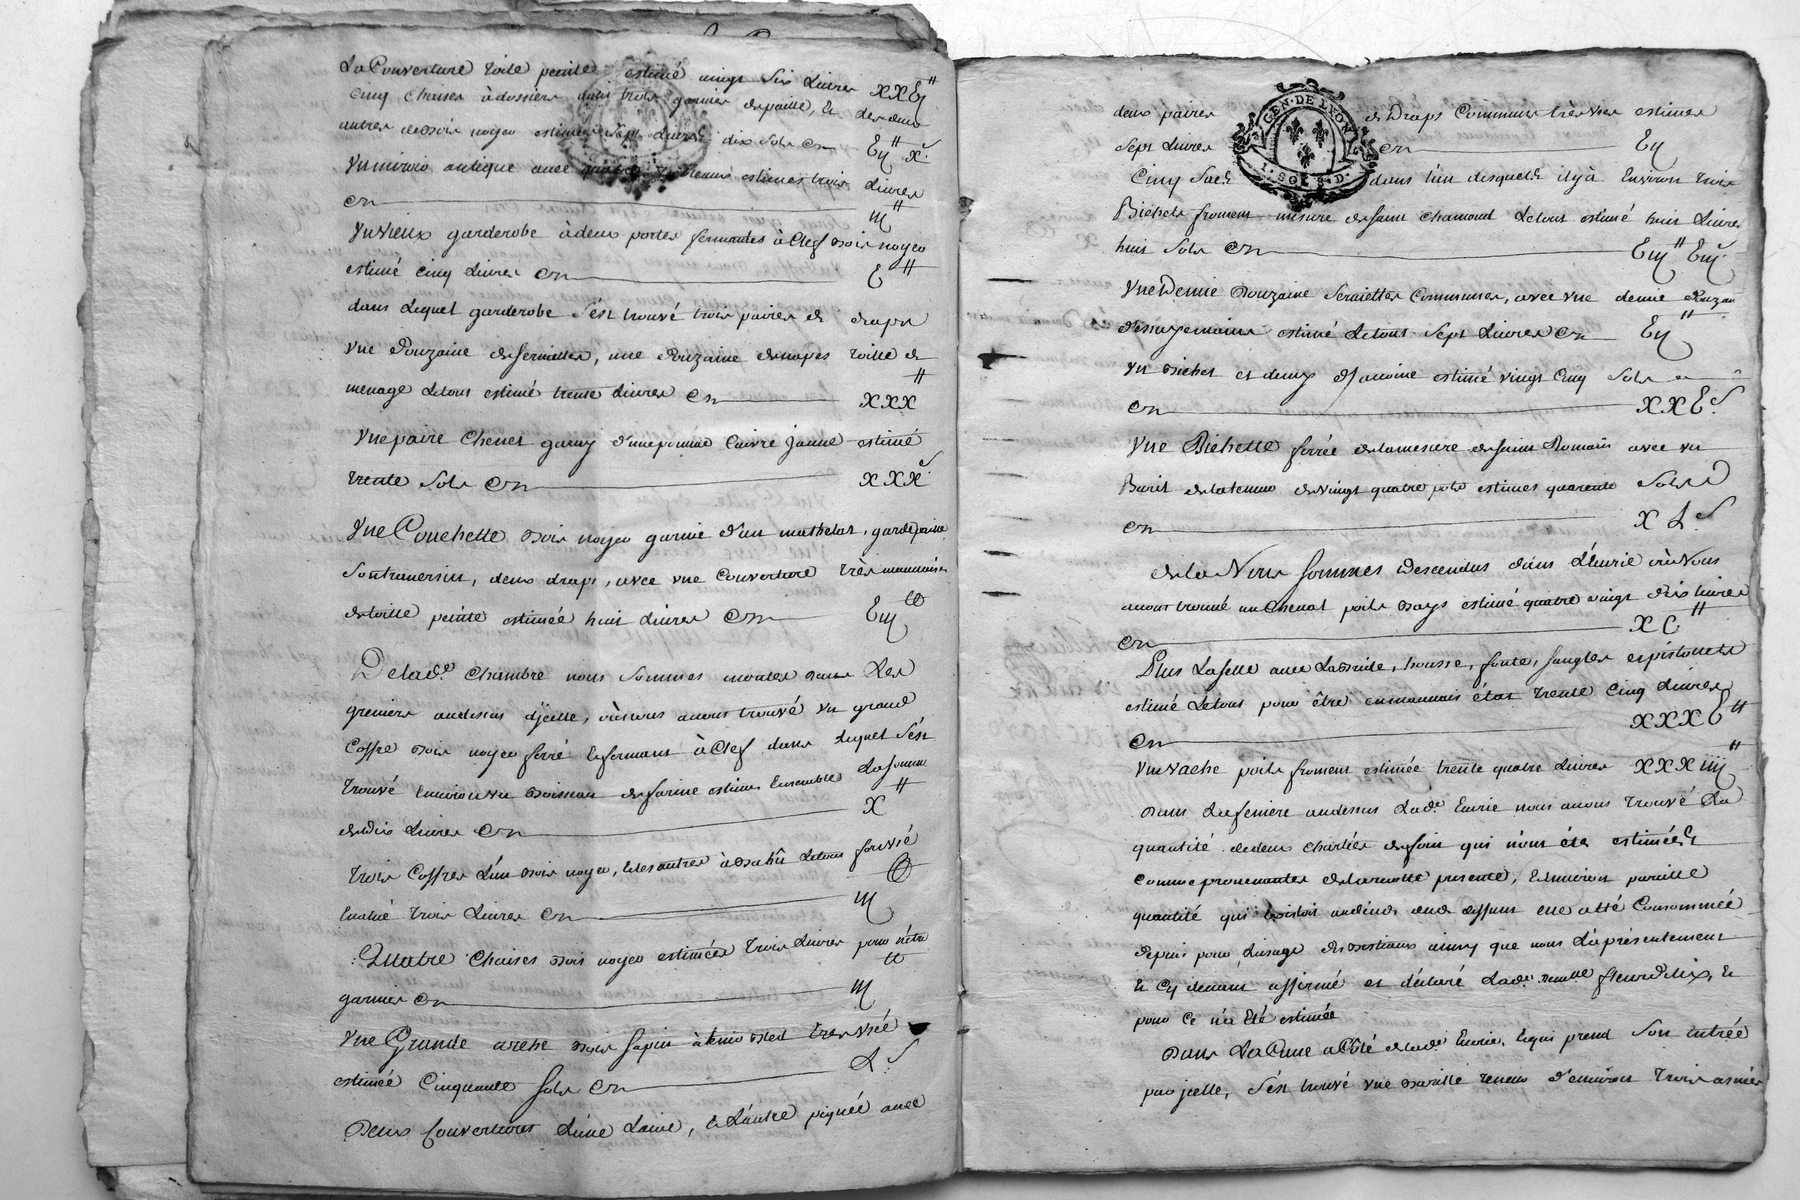 La Couverture toile peinte estimé vingt six Livres XXVI#
Cinq chaises à dossiers dont trois garnies de paille, et des deux
autres de bois noyer estimées sept Livres dix sols cy VII# X s.
Un miroir antique avec estimés trois Livres
cy III#
Un vieux garderobe à deux portes fermantes à clef bois noyer
estimé cinq Livres cy V#
dans Lequel garderobe s'est trouvé trois paires de draps
une Douzaine de serviettes, une Douzaine de napes toille de
menage Le tout estimé trente Livres cy XXX#
Une paire Chenet garny d'une pomme Cuivre jaune estimé
trente sols cy XXX s.
Une Couchette bois noyer garnie d'un mathelat, gardepaille
Son traversin, deux draps, avec une couverture très mauvaise
de toille peinte estimée huit Livres cy VIII#
De lad.e chambre nous sommes montés dans Les
greniers au dessus d'jcelle, où nous avons trouvé un grand
Coffre bois noyer ferré et fermant à Clef dans Lequel s'est
trouvé Environ un boisseau de farine estimés Ensemble La somme
de dix Livres cy X#
trois Coffres L'un bois noyer, et les autres à bahû Le tout
Evalué trois Livres cy III
Quatre Chaises bois noyer estimées trois Livres pour n'être
garnies cy III#
Une Grande arche bois sapin très usée
estimée Cinquante sols cy L s.
Deux Couvertures L'une Laine, et L'autre piquée avec
deux paires de Draps Communs très usés estimés
sept Livres cy VII
GEN. DE LYON
1. SOL 8. D.
Cinq sacs dans l'un desquels il y à Environ trois
Bichets froment mesure de saint Chamond Le tout estimé huit Livres
huit sols cy VIII# VIII s.
Une Demie Douzaine serviettes communes, avec une demie douzaine
d'essuyemains estimé Le tout sept Livres cy VII#
Un bichet et demy d'avoine estimé vingt cinq sols
cy XXV s.
Une Bichette ferrée de la mesure de saint Romain avec un
Baril de la teneur de vingt quatre pots estimés quarente sols
cy XL s.
de La Nous sommes Descendus dans L'Ecurie où Nous
avons trouvé un Cheval poils bays estimé quatre vingt dix Livres
cy XC#
Plus La selle avec La bride, housse, fonte, sangles et pistollets
estimé Le tout pour être en mauvais état trente Cinq Livres
cy XXXV#
Une vache poils froment estimée trente quatre Livres XXXIIII#
Dans La feniere au dessus Lad.e Ecurie nous avons trouvé La
quantité de deux chariées de foin qui n'ont été estimées
comme provenantes de La recolte presente, et environ pareille
quantité qui existoit au decés dud. deffunt ene atté Consommée
depuis pour L'usage des bestiaux ainsy que nous L'a présentement
et cy devant affirmé et déclaré Lad.e Demlle fleurdelix, et
pour ce n'a Eté estimée
Dans La Cave a Côté de Lad.e Ecurie, et qui prend son entrée
par jcelle, s'est trouvé une bareille teneur d'environ trois asnées